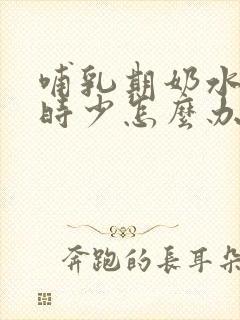 哺乳期奶水
時少怎麼办
奔跑的長耳朵